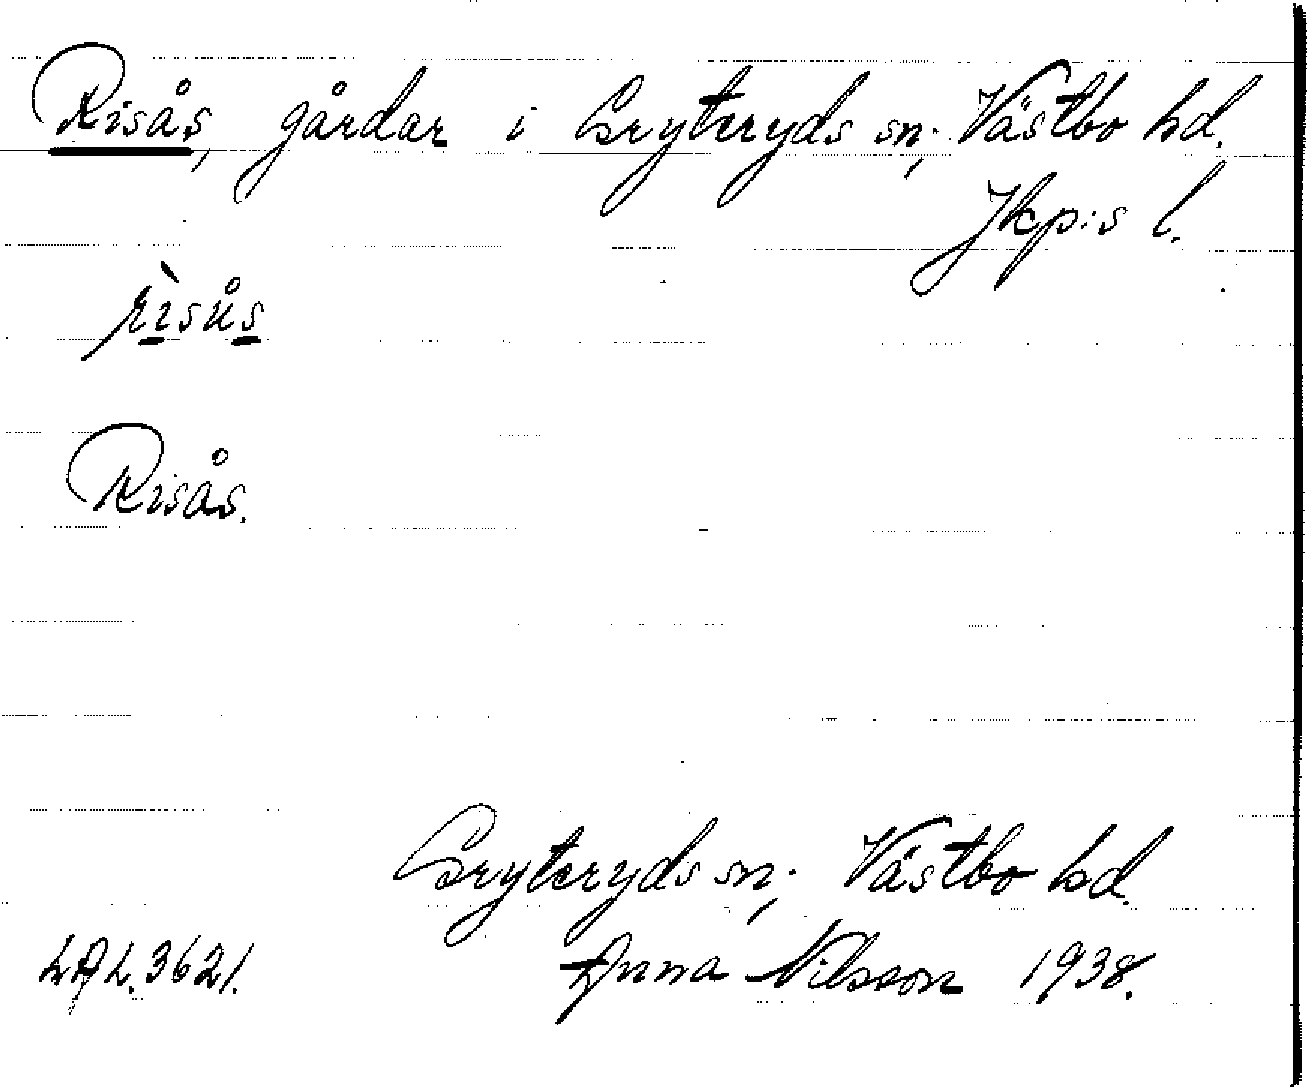 Risås, gårdar i Gryteryds sn; Västbo hd.
Jkp:s l.
rìsås
Risås.
Gryteryds sn; Västbo hd.
LAL. 3621. Anna Nilsson 1938.